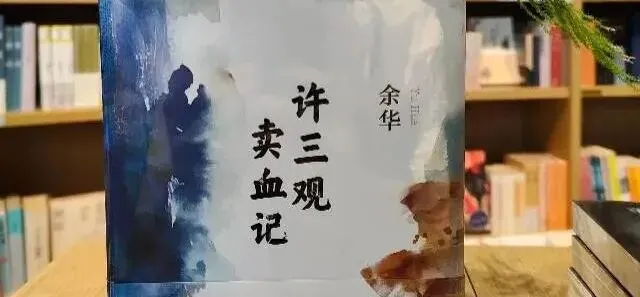 许三观
卖血记
余华